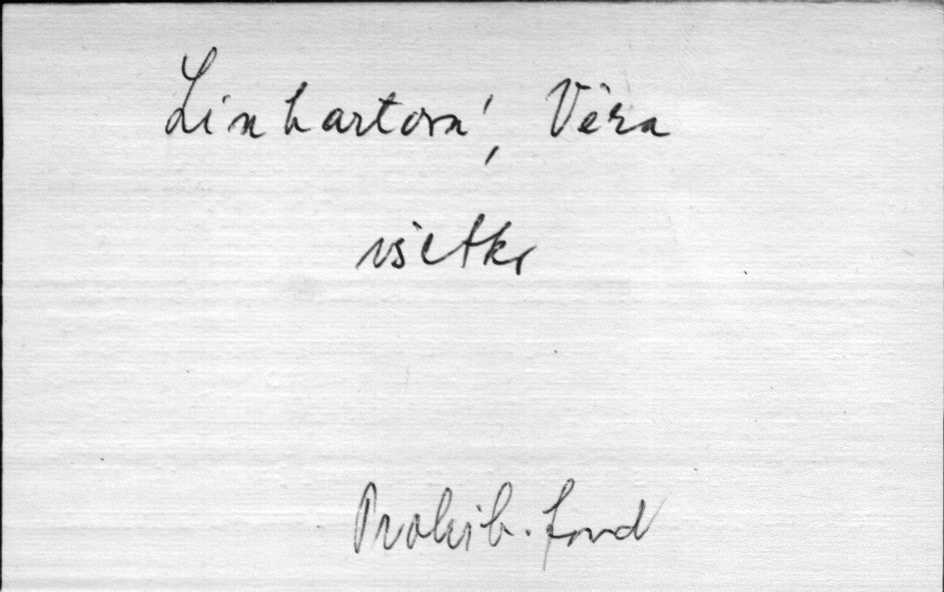 Linhartová, Věra
všetko
Prohib. fond